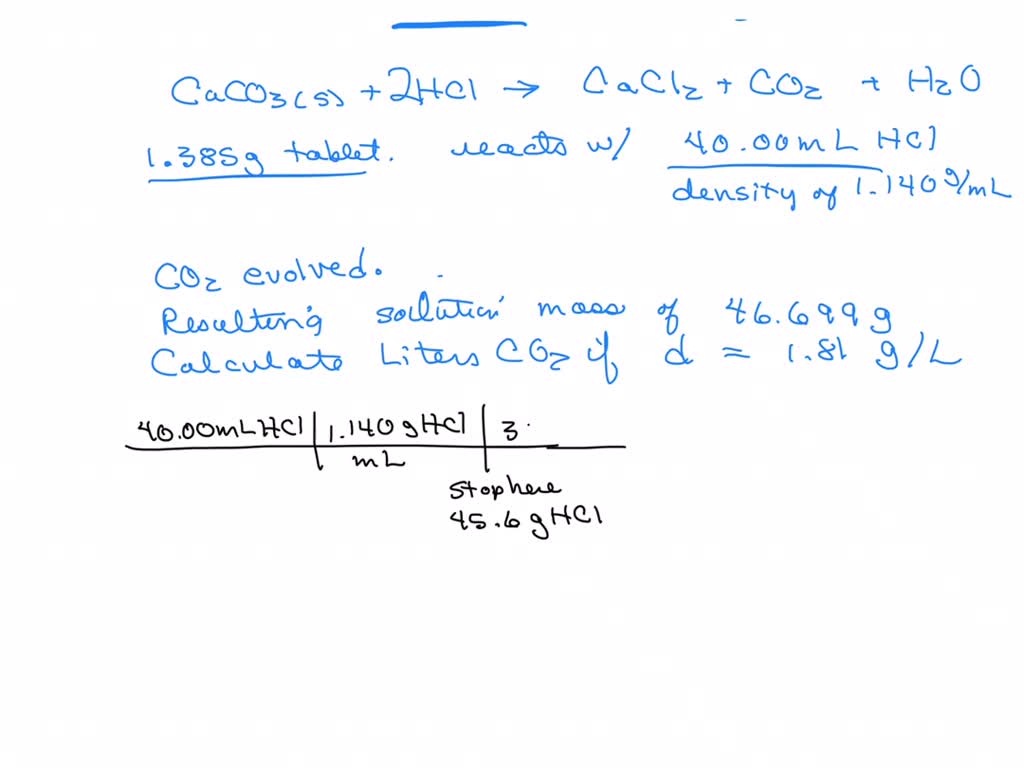 CaCO3(s) + 2HCl → CaCl2 + CO2 + H2O
1.385g tablet. reacts w/ 40.00mL HCl
density of 1.140 g/mL
CO2 evolved.
Resulting solution mass of 46.699 g
Calculate Liters CO2 if d = 1.81 g/L
40.00mL HCl | 1.140 g HCl | 3
mL
stop here
45.6 g HCl